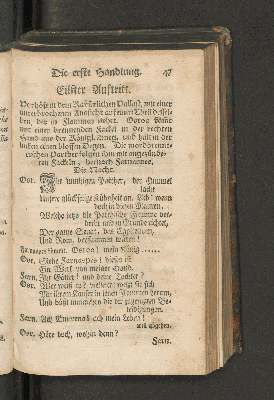 Die erste Handlung. 47
Eilfter Auftritt.
Vorhof in dem Kayserlichen Pallast, mit einer
unterbrochenen Aussicht auf einen Theil desselben,
der in Flammen stehet. Osroa
mit einer brennenden Fackel in der rechten
Hand und der Königl.
linken einen blossen Degen. Die mordbrennerischen
Parther folgen ihm mit angezündeten
Fackeln, hernach Farnaspes.
Die Nacht.
Osr. Ihr muthigen Parther, der Himmel
lacht
Unsrer glückselige Kühnheit an. Ach! wann
doch in diesen Flammen,
Welche jetzt die Parthische Flamme verderbt
und zu Grunde richtet,
Der ganze Senat, das Capitolium,
Und Rom, beysammen wären!
Farnaspes. Osroa! mein König -----
Osr. Siehe Farnaspes! dieses ist
Ein Werk von meiner Hand.
Farn. Ihr Götter! und deine Tochter?
Osr. Wer weiß es? vielleicht
mit ihrem Kayser in jenen Flammen herum,
Und büsst nunmehro die dir zugefügten Beleidigungen.
Farn. Ach Emirena! ach mein Leben!
will abgehen.
Osr. Höre doch, wohin denn?
Farn.